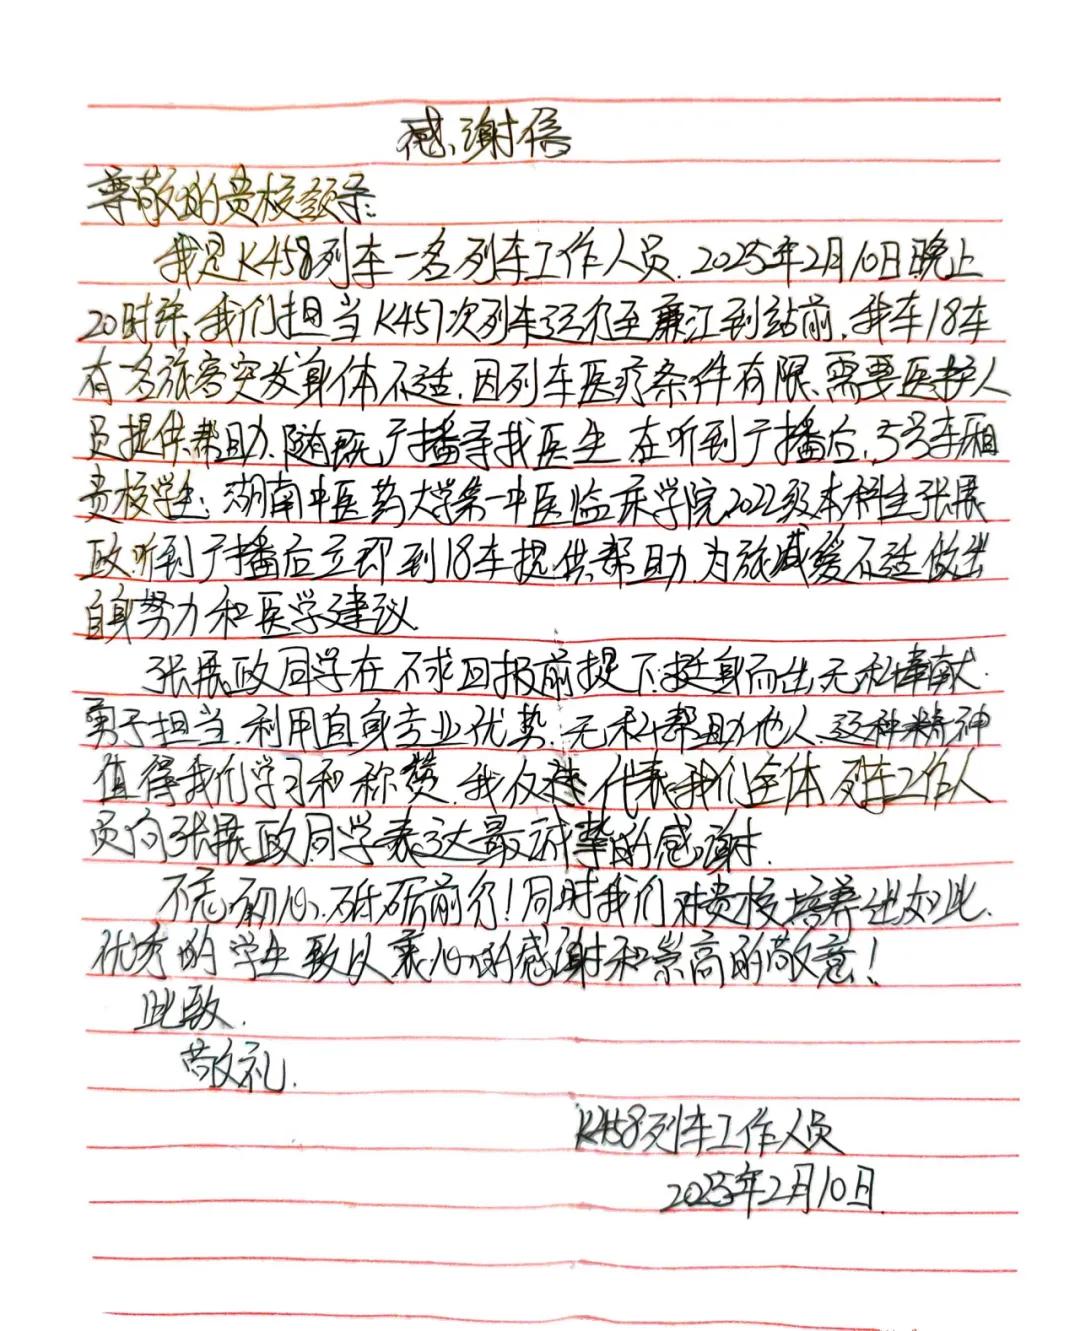 感谢信
尊敬的贵校领导:
我是K458列车一名列车工作人员.2025年2月10日晚上
20时许,我们担当K457次列车运行至廉江到站前,我车18车
有名旅客突发身体不适.因列车医疗条件有限、需要医护人
员提供帮助.随既广播寻找医生.在听到广播后,3号车厢
贵校学生:湖南中医药大学第一中医临床学院2022级本科生张展
政听到广播后立即到18车提供帮助.为旅减缓不适做出
自身努力和医学建议.
张展政同学在不求回报前提下.挺身而出.无私奉献.
勇于担当.利用自身专业优势.无私帮助他人.这种精神
值得我们学习和称赞.我仅 代表我们全体列车工作人
员向张展政同学表达最诚挚的感谢.
不忘初心.砥砺前行!同时我们对贵校培养出如此.
优秀的学生致以衷心的感谢和崇高的敬意!
此致.
敬礼.
K458列车工作人员
2025年2月10日.